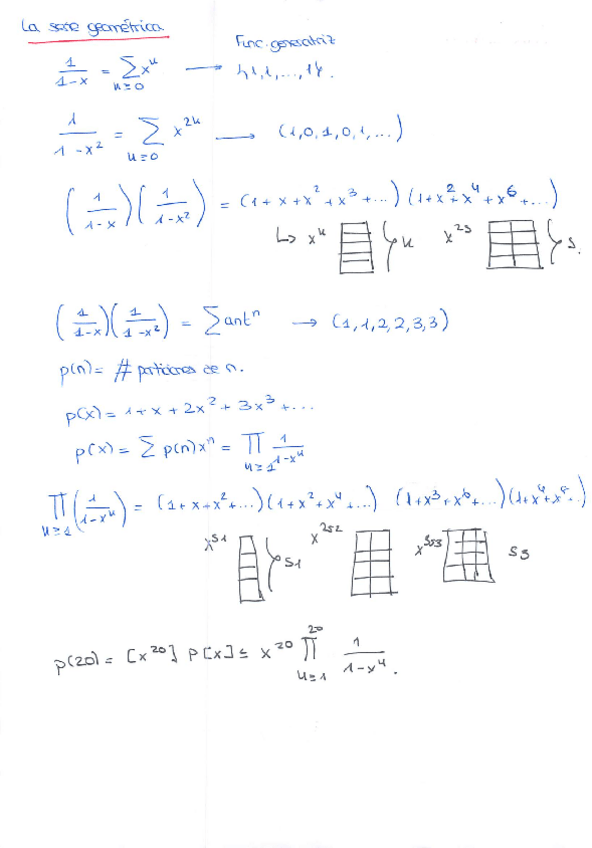 La serie geométrica
Func. generatriz
1/(1-x) = ∑_{k≥0} x^k → {1,1,1,...,1}.
1/(1-x²) = ∑_{k≥0} x^{2k} → (1,0,1,0,1,...)
(1/(1-x))(1/(1-x²)) = (1+x+x²+x³+...)(1+x²+x⁴+x⁶+...)
↳ x^k } k x^{2s} } s.
(1/(1-x))(1/(1-x²)) = ∑ant^n → (1,1,2,2,3,3)
p(n) = # particiones de n.
p(x) = 1+x+2x²+3x³+...
p(x) = ∑ p(n)x^n = ∏_{k≥1} 1/(1-x^k)
∏_{k≥1} (1/(1-x^k)) = (1+x+x²+...)(1+x²+x⁴+...) (1+x³+x⁶+...)(1+x⁴+x⁸..)
x^{s1} } s1 x^{2s2} x^{3s3} s3
p(20) = [x^{20}] P[x] = x^{20} ∏_{k≥1}^{20} 1/(1-x^k).